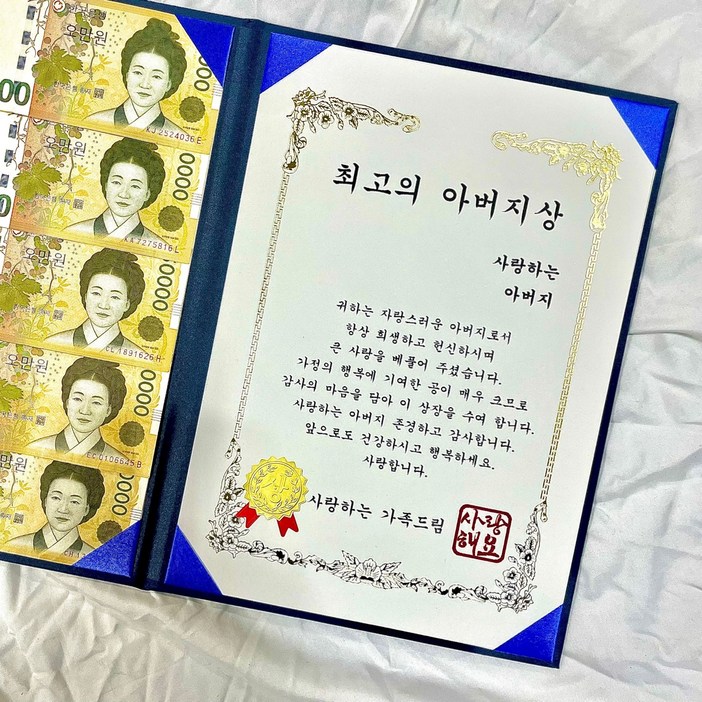 한국은행
오만원
KJ 2524036 E
오만원
KA 7275816 L
오만원
CL 1891626 H
오만원
EC 0106645 B
만원
최고의 아버지상
사랑하는
아버지
귀하는 자랑스러운 아버지로서
항상 희생하고 헌신하시며
큰 사랑을 베풀어 주셨습니다.
가정의 행복에 기여한 공이 매우 크므로
감사의 마음을 담아 이 상장을 수여 합니다.
사랑하는 아버지 존경하고 감사합니다.
앞으로도 건강하시고 행복하세요.
사랑합니다.
상
사랑하는 가족드림
사랑
해요